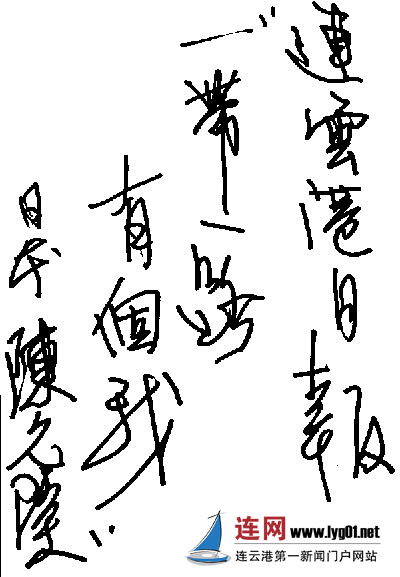 連雲港日報
"一帶一路
有個我"
日本 陳允陸
连网 www.lyg01.net
连云港第一新闻门户网站